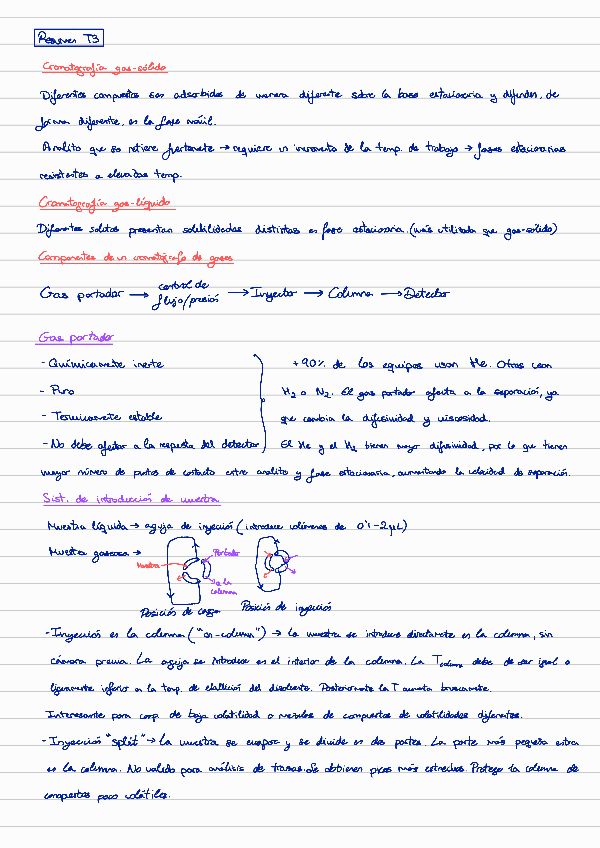 Resumen T3
Cromatografía gas-sólido
Diferentes compuestos son adsorbidos de manera diferente sobre la base estacionaria y difunden, de
forma diferente, en la fase móvil.
Analito que se retiene fuertemente → requiere un incremento de la temp. de trabajo → fases estacionarias
resistentes a elevadas temp.
Cromatografía gas-líquido
Diferentes solutos presentan solubilidades distintas en fase estacionaria. (más utilizada que gas-sólido)
Componentes de un cromatógrafo de gases
Gas portador → control de flujo/presión → Inyector → Columna → Detector
Gas portador
- Químicamente inerte
- Puro
- Térmicamente estable
- No debe afectar a la respuesta del detector
+90% de los equipos usan He. Otros usan
H₂ o N₂. El gas portador afecta a la separación, ya
que cambia la difusividad y viscosidad.
El He y el H₂ tienen mayor difusividad, por lo que tienen
mayor número de puntos de contacto entre analito y fase estacionaria, aumentando la velocidad de separación.
Sist. de introducción de muestra
Muestra líquida → aguja de inyección (introduce volúmenes de 0'1-2 μL)
Muestra gaseosa →
Muestra
Portador
a la
columna
Posición de carga
Posición de inyección
- Inyección en la columna ("on-column") → La muestra se introduce directamente en la columna, sin
cámara previa. La aguja se introduce en el interior de la columna. La Tcolumna debe de ser igual o
ligeramente inferior a la temp. de ebullición del disolvente. Posteriormente la T aumenta bruscamente.
Interesante para comp. de baja volatilidad o mezclas de compuestos de volatilidades diferentes.
- Inyección "split" → La muestra se evapora y se divide en dos partes. La parte más pequeña entra
en la columna. No válido para análisis de trazas. Se obtienen picos más estrechos. Protege la columna de
compuestos poco volátiles.